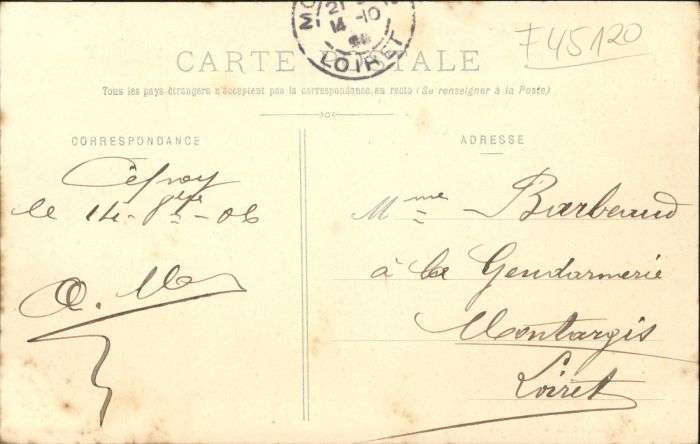 21
14-10
LOIRET
F45120
CARTE POSTALE
Tous les pays étrangers n'acceptent pas la correspondance au recto (Se renseigner à la Poste)
CORRESPONDANCE
Cepoy
le 14-8bre-06
ADRESSE
Mme Barbeaud
à la Gendarmerie
Montargis
Loiret